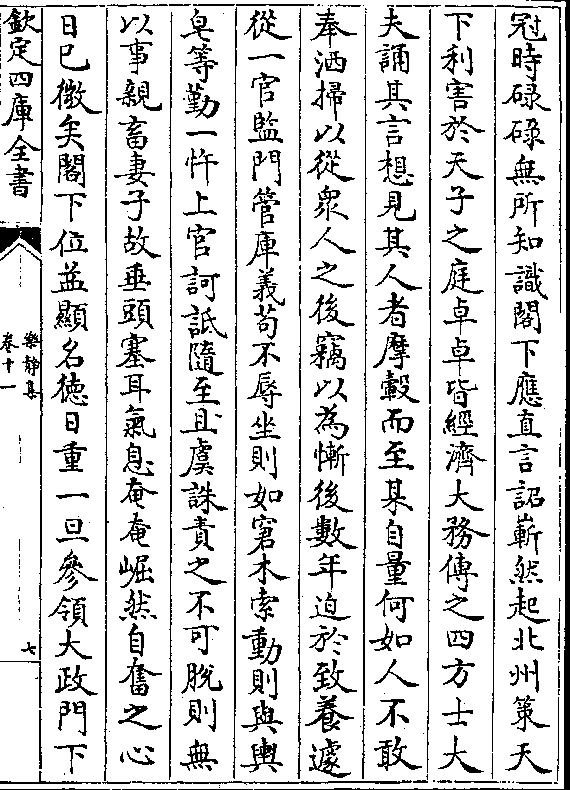 冠時碌碌無所知識閣下應直言詔嶄然起北州策天
下利害於天子之庭卓卓皆經濟大務傳之四方士大
夫誦其言想見其人者摩轂而至某自量何如人不敢
奉洒掃以從衆人之後竊以為慚後數年迫於致養遽
從一官監門管庫義苟不辱坐則如窘木索動則與輿
皂等勤一忤上官訶詆隨至且虞誅責之不可脫則無
以事親畜妻子故垂頭塞耳氣息奄奄崛然自奮之心
日已微矣閣下位益顯名德日重一旦參領大政門下
欽定四庫全書
樂静集
卷十一
七